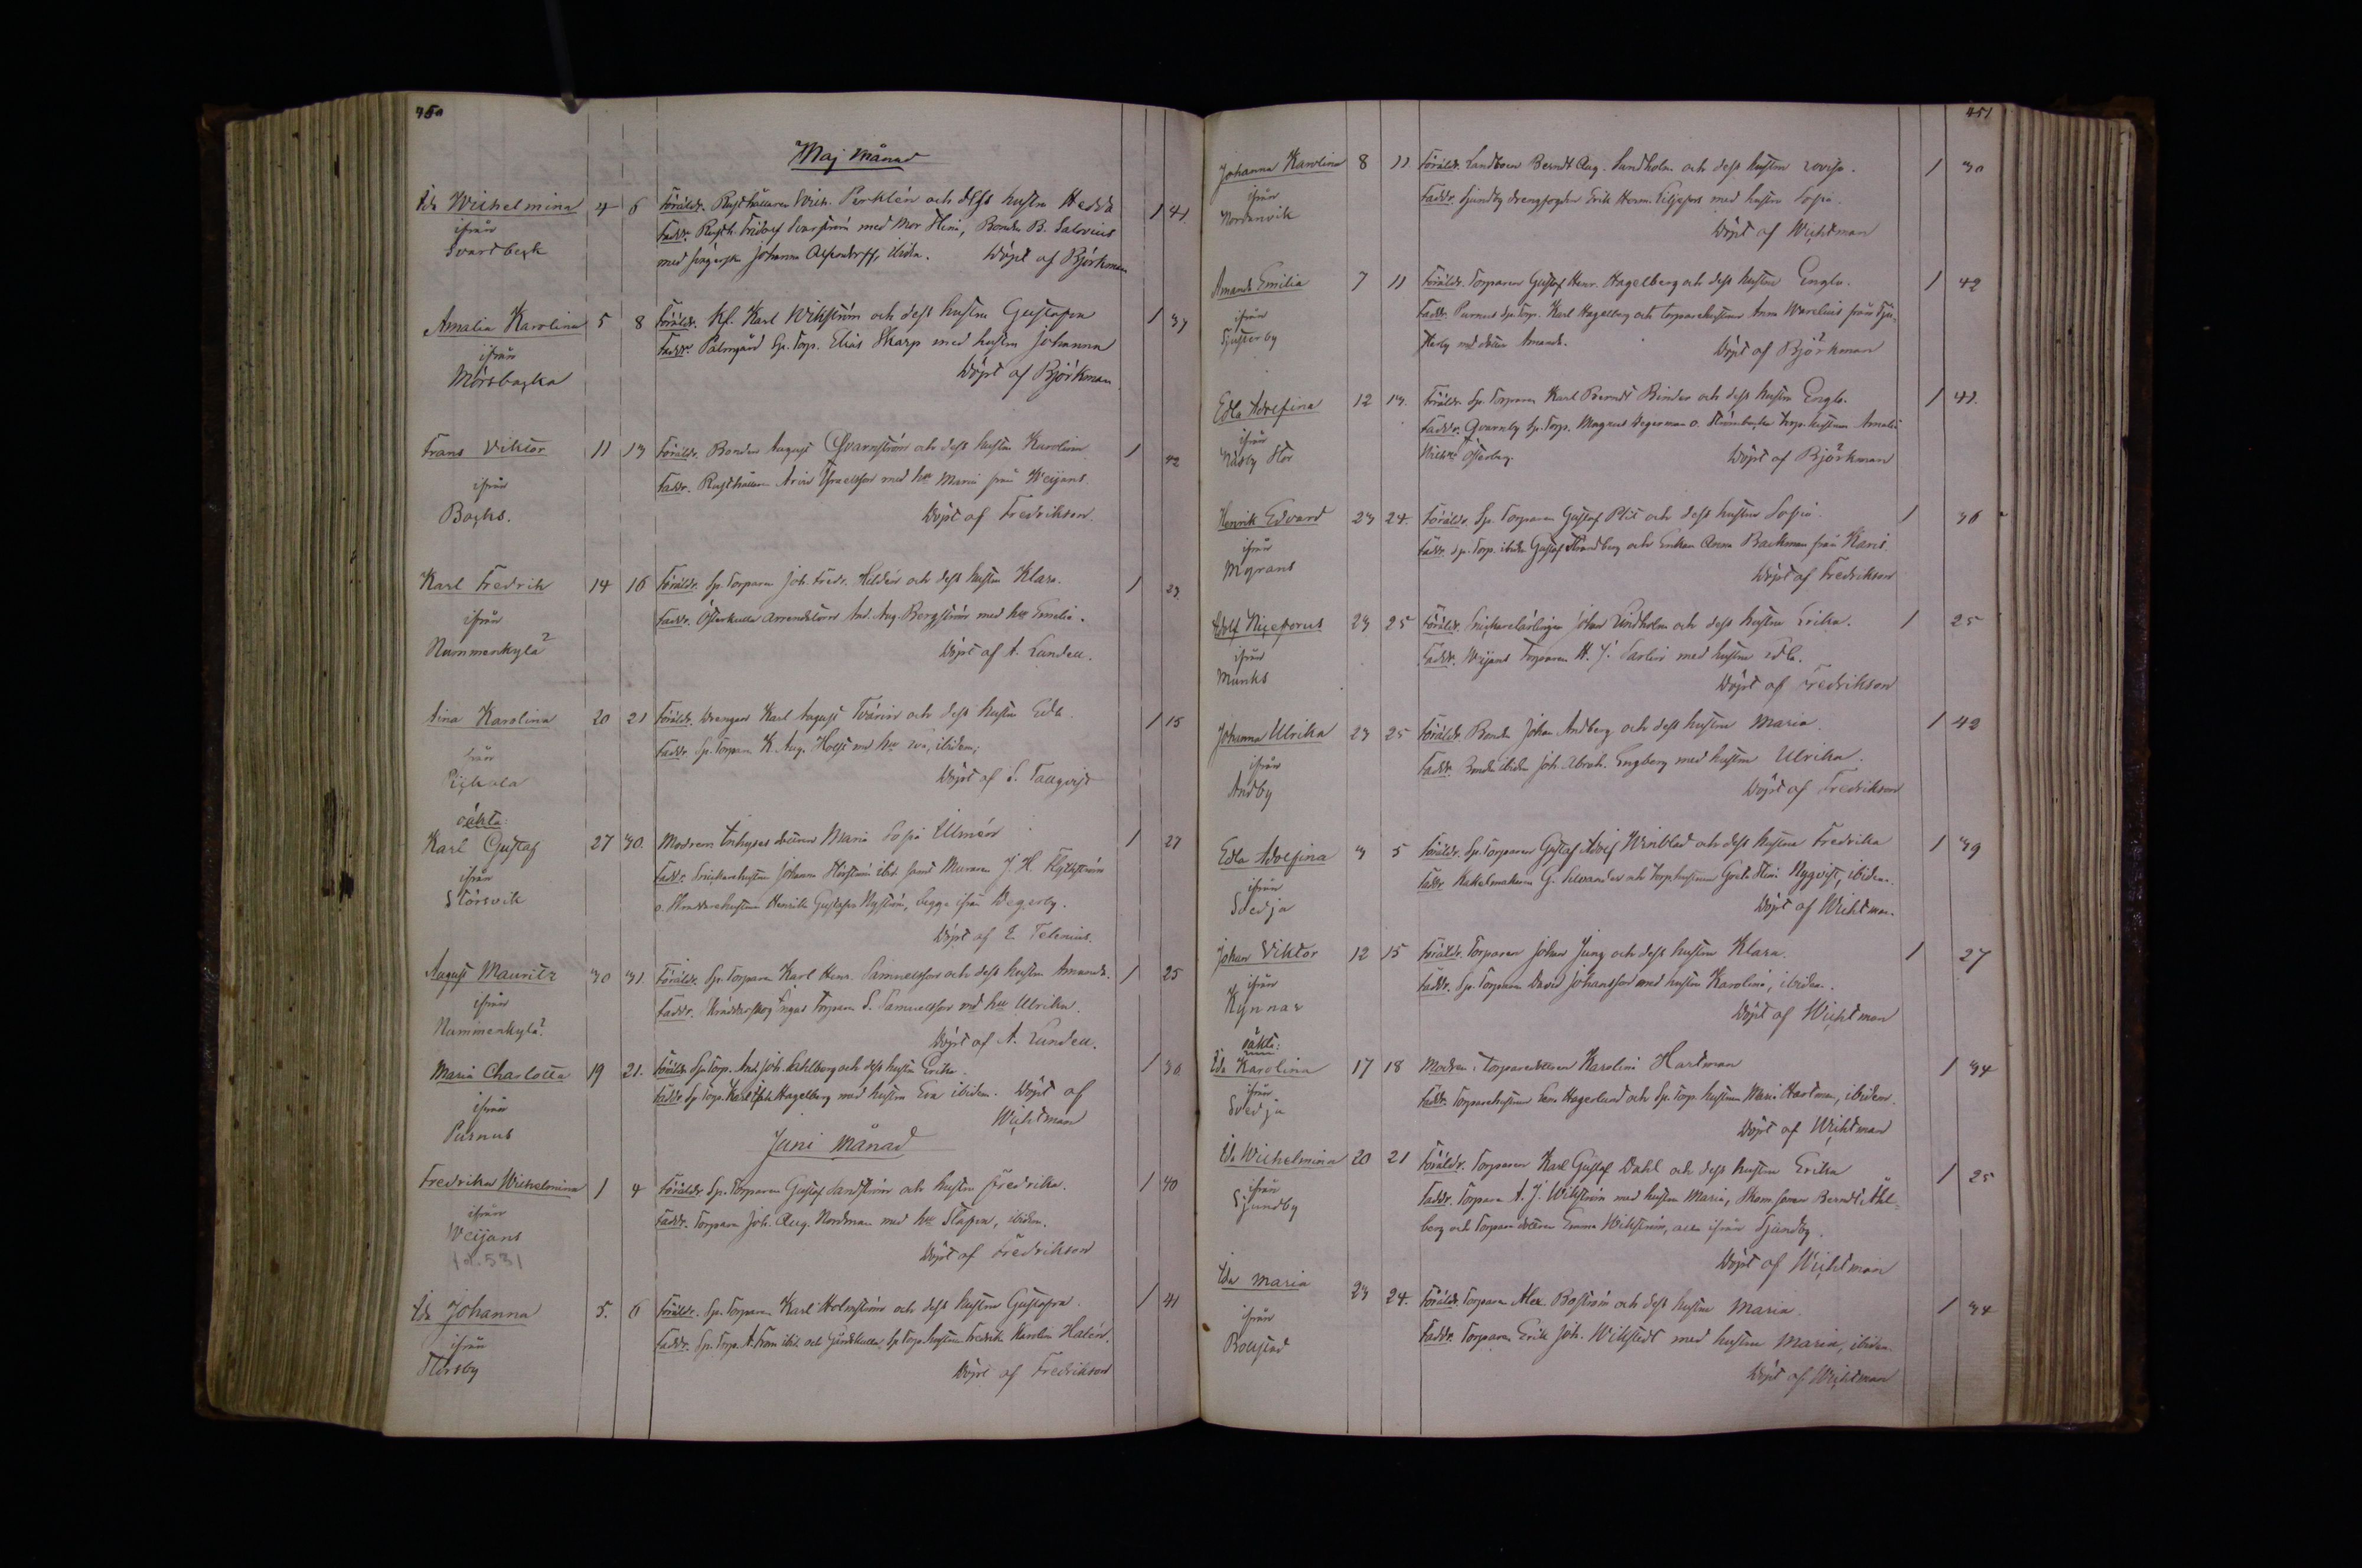 450
Maj Månad
Ida Wilhelmina 4 6 Föräldr. Rusthållaren Wilh. Perklén och dess hustru Hedda 1 41.
ifrån Faddr. Rusth. Fridolf med Mor Stina, Bonden B. Salovius
Svartbeck med Johanna ibidem. Döpt af Björkman
Amalia Karolina 5 8 Föräldr. Kf. Karl Wikström och dess hustru Gustafva 1 37
ifrån Faddr. Palmgård Sp. Torp. Elias Skarp med hustru Johanna
Mörsbacka Döpt af Björkman
Frans Viktor 11 13 Föräldr. Bonden August Qvarnström och dess hustru Karolina 1 42
ifrån Faddr. Rusthållaren Arvid Israelsson med hu Maria från Weijans.
Backs. Döpt af Fredrikson
Karl Fredrik 14 16 Föräldr. Sp. Torparen Joh. Fredr. Heldén och dess hustru Klara. 1 23
ifrån Faddr. Österkulla Arrendatorn And. Aug. Bergström med hu Emelia.
Nummenkylä Döpt af A. Lundell.
Tina Karolina 20 21 Föräldr. Drengen Karl August och dess hustru Edla 1 15
från Faddr. Sp. Torparen K. Aug. Holst med hu Eva, ibidem;
Pickala Döpt af S. Tallqvist
oäkta:
Karl Gustaf 27 30. Modren: Inhyses dottren Maria Sofia Ulmén 1 27
ifrån Faddr. Snickarehustrun Johanna ibid. samt Muraren J. H. Flykström
Störsvik o. Skreddarehustrun Henrika Gustafva Nyström, begge ifrån Degerby.
Döpt af E. Telenius.
August Mauritz 30 31. Föräldr. Sp. Torparen Karl Henr. Samuelsson och dess hustru Amanda. 1 25
ifrån Faddr. Skräddarskog Torparen S. Samuelsson med hu Ulrika.
Nummenkylä. Döpt af A. Lundell.
Maria Charlotta 19 21. Föräldr. Sp. Torp. And. Joh. Sahlberg och dess hustru Erika. 1 30
ifrån Faddr. Sp. Torp. Karl Joh. Hagelberg med hustru Eva ibidem. Döpt af
Purnus Wichtman
Juni Månad
Fredrika Wilhelmina 1 4 Föräldr. Sp. Torparen Gustaf Sandström och hustru Fredrika. 1 40
ifrån Faddr. Torparen Joh. Aug. Nordman med hu Staffva, ibidem.
Weijans Döpt af Fredrikson
fol. 531
Ida Johanna 5. 6 Föräldr. Sp. Torparen Karl Holmström och dess hustru Gustafva. 1 41
ifrån Faddr. Sp. Torp. A. From ibid. och Gårdskulla Sp. Torp. hustrun Fredrika Karolina Halén.
Störsby Döpt af Fredrikson
451
Johanna Karolina 8 11 Föräldr. Landboen Berndt Aug. Sandholm och dess hustru Lovisa. 1 30
ifrån Faddr. Sjundby drengfogden Erik Herm. Liljefors med hustru Sofia.
Nordanvik Döpt af Wichtman
Amanda Emilia 7 11 Föräldr. Torparen Gustaf Henr. Hagelberg och dess hustru Engla. 1 42
ifrån Faddr. Purnus Sp. Torp. Karl Hagelberg och torparehustrun Anna Warelius från Tju-
Tjusterby sterby med dottren Amanda. Döpt af Björkman
Edla Adolfina 12 13. Föräldr. Sp. Torparen Karl Berndt Binder och dess hustru Engla. 1 41.
ifrån Faddr. Qvarnby Sp. Torp. Magnus Segerman o. Strömbacka Torp. hustrun Amalia
Näsby Stor Österberg. Döpt af Björkman
Henrik Edvard 23 24. Föräldr. Sp. Torparen Gustaf Plit och dess hustru Sofia. 1 36
ifrån Faddr. Sp. Torp. ibidem Gustaf Strandberg och Enkan Anna Backman från Karis
Myrans Döpt af Fredrikson
Adolf Niceforus 23 25 Föräldr. Snickarelärlingen Johan Lindholm och dess hustru Erika. 1 25
ifrån Faddr. Weijans Torparen H. J. Sarlin med hustru Edla.
Munks Döpt af Fredrikson
Johanna Ulrika 23 25 Föräldr. Bonden Johan Andberg och dess hustru Maria. 1 42
ifrån Faddr. Bonden ibidem Joh. Abrah. Engberg med hustru Ulrika.
Andby Döpt af Fredrikson
Edla Adolfina 3 5 Föräldr. Sp. Torparen Gustaf Adolf Winblad och dess hustru Fredrika 1 39
ifrån Faddr. Kakelmakaren G. Selvander och Torp. hustrun Greta Stina Nyqvist, ibidem.
Svedja Döpt af Wichtman.
Johan Viktor 12 15 Föräldr. Torparen Johan Jung och dess hustru Klara. 1 27
ifrån Faddr. Sp. Torparen David Johansson med hustru Karolina, ibidem.
Kynnar Döpt af Wichtman
oäkta:
Ida Karolina 17 18 Modren: Torparedottren Karolina Hartman 1 34
ifrån Faddr. Torparehustrun Eva Hagerlund och Sp. Torp. hustrun Maria Hartman, ibidem.
Svedja Döpt af Wichtman
Ida Wilhelmina 20 21 Föräldr. Torparen Karl Gustaf Dahl och dess hustru Erika 1 25
ifrån Faddr. Torparen A. J. Wikström med hustru Maria, Skomakaren Berndt Ahl-
Sjundby berg och Torparedottren Emma Wikström, alla ifrån Sjundby.
Döpt af Wichtman
Ida Maria 23 24. Föräldr. Torparen Alex. Boström och dess hustru Maria. 1 34
ifrån Faddr. Torparen Erik Joh. Wikstedt med hustru Maria, ibidem.
Bollstad Döpt af Wichtman